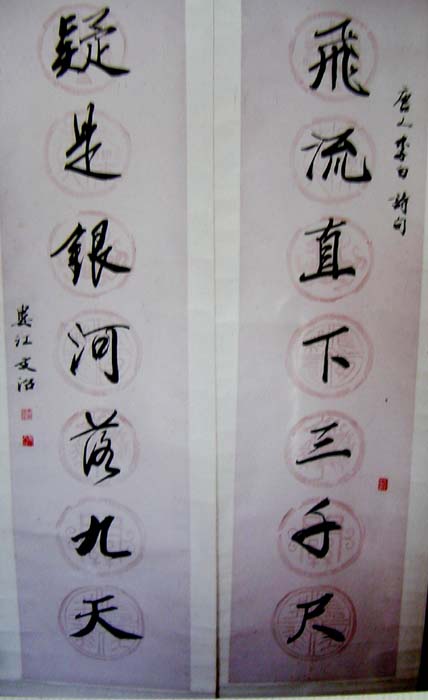 唐人李白詩句
飛流直下三千尺
疑是銀河落九天